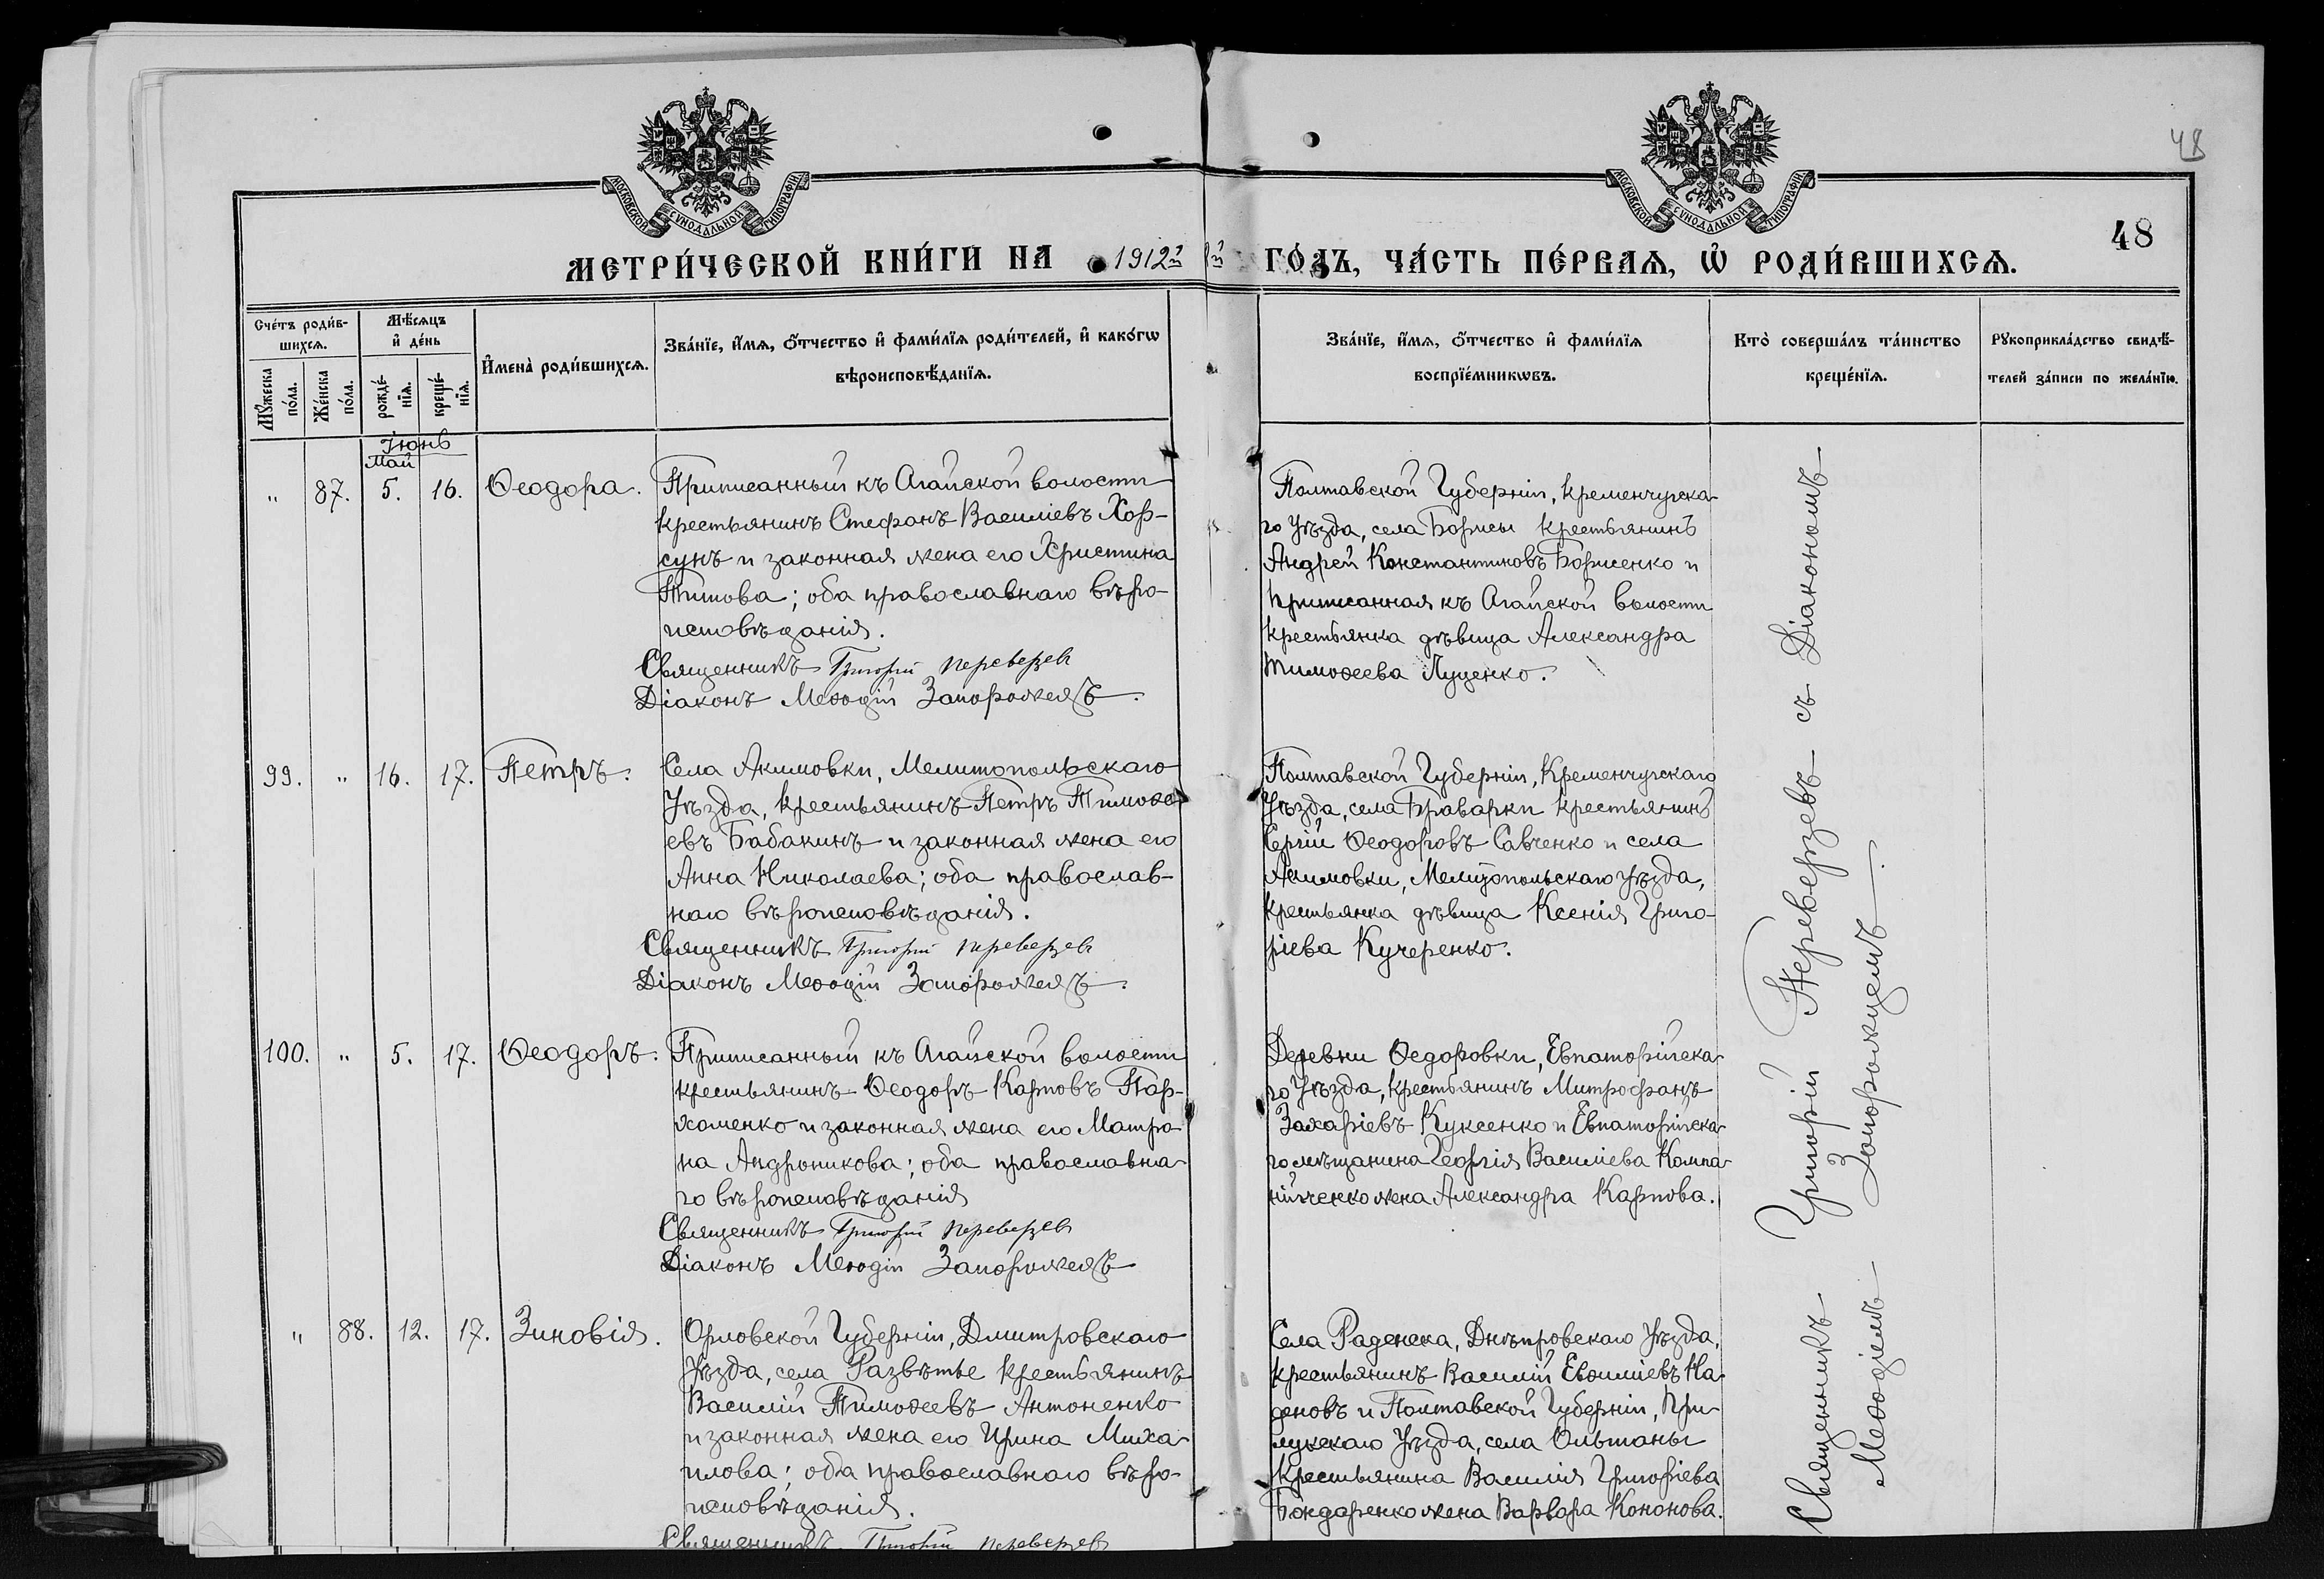 МОСКОВСКОЙ СѴНОДАЛЬНОЙ ТИПОГРАФІИ
МОСКОВСКОЙ СѴНОДАЛЬНОЙ ТИПОГРАФІИ
48
48
МЕТРИ́ЧЕСКОЙ КНИ́ГИ НА 1912й ГО́ДЪ, ЧА́СТЬ ПЕ́РВАѦ, Ѡ҆ РОДИ́ВШИХСѦ.
Сче́тъ роди́в-
шихсѧ.
Мꙋ́жеска
по́ла.
Же́нска
по́ла.
Мѣ́сѧцъ
и҆ де́нь
рожде́-
нїѧ.
креще́-
нїѧ.
И҆мена̀ роди́вшихсѧ.
Зва́нїе, и҆́мѧ, ѻ҆́тчество и҆ фами́лїѧ роди́телей, и҆ како́гѡ
вѣроисповѣ́данїѧ.
Зва́нїе, и҆́мѧ, ѻ҆́тчество и҆ фами́лїѧ
воспрїе́мникѡвъ.
Кто̀ соверша́лъ та́инство
креще́нїѧ.
Рꙋкоприкла́дство свидѣ́-
телей за́писи по жела́нїю.
Іюнь
Май
" 87. 5. 16. Ѳеодора.
Приписанный къ Агайской волости
крестьянинъ Стефанъ Василіевъ Хор-
сунъ и законная жена его Христина
Титова; оба православнаго вѣро-
исповѣданія.
Священникъ Григорій Переверзев
Діаконъ Меѳодій Запорожецъ.
Полтавской Губерніи, Кременчугска-
го Уѣзда, села Борисы крестьянинъ
Андрей Константиновъ Борисенко и
приписанная къ Агайской волости
крестьянка дѣвица Александра
Тимоѳеева Луценко.
99. " 16. 17. Петръ.
Села Акимовки, Мелитопольскаго
Уѣзда, крестьянинъ Петръ Тимоѳе-
евъ Бабакинъ и законная жена его
Анна Николаева; оба православ-
наго вѣроисповѣданія.
Священникъ Григорій Переверзев
Діаконъ Меѳодій Запорожецъ.
Полтавской Губерніи, Кременчугскаго
Уѣзда, села Браварки крестьянинъ
Сергій Ѳеодоровъ Савченко и села
Акимовки, Мелитопольскаго Уѣзда,
крестьянка дѣвица Ксенія Григо-
ріева Кучеренко.
100. " 5. 17. Ѳеодоръ.
Приписанный къ Агайской волости
крестьянинъ Ѳеодоръ Карповъ Пар-
хоменко и законная жена его Матро-
на Андроникова; оба православна-
го вѣроисповѣданія
Священникъ Григорій Переверзев
Діаконъ Меѳодій Запорожецъ
Деревни Ѳедоровки, Евпаторійска-
го Уѣзда, крестьянинъ Митрофанъ
Захаріевъ Куксенко и Евпаторійска-
го мѣщанина Георгія Василіева Компа-
нійченко жена Александра Карпова.
" 88. 12. 17. Зиновія.
Орловской Губерніи, Дмитровскаго
Уѣзда, села Развѣтье крестьянинъ
Василій Тимоѳеевъ Антоненко
и законная жена его Ирина Миха-
илова; оба православнаго вѣро-
исповѣданія.
Священникъ Григорій Переверзев
Села Раденска, Днѣпровскаго Уѣзда,
крестьянинъ Василій Евѳиміевъ На-
деновъ и Полтавской Губерніи, При-
лукскаго Уѣзда, села Ольшаны
крестьянина Василія Григоріева
Бондаренко жена Варвара Кононова.
Священникъ Григорій Переверзевъ съ Діакономъ
Меѳодіемъ Запорожцемъ.